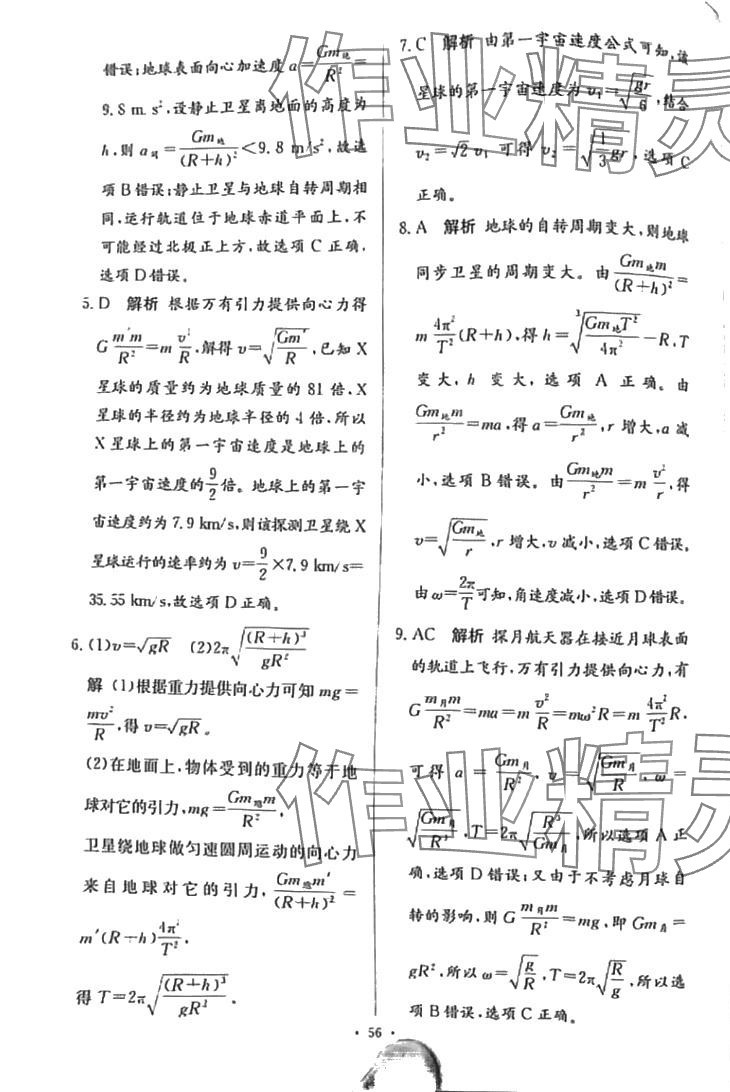 错误;地球表面向心加速度a=Gm地/R²=
9.8 m/s²,设静止卫星离地面的高度为
h,则a卫=Gm地/(R+h)²<9.8 m/s²,故选
项B错误;静止卫星与地球自转周期相
同,运行轨道位于地球赤道平面上,不
可能经过北极正上方,故选项C正确,
选项D错误。
5. D 解析 根据万有引力提供向心力得
G m′m/R²=m v²/R,解得v=√(Gm′/R),已知X
星球的质量约为地球质量的81倍,X
星球的半径约为地球半径的4倍,所以
X星球上的第一宇宙速度是地球上的
第一宇宙速度的9/2倍。地球上的第一宇
宙速度约为7.9 km/s,则该探测卫星绕X
星球运行的速率约为v=9/2×7.9 km/s=
35.55 km/s,故选项D正确。
6. (1)v=√gR (2)2π√((R+h)³/gR²)
解 (1)根据重力提供向心力可知mg=
mv²/R,得v=√gR。
(2)在地面上,物体受到的重力等于地
球对它的引力,mg=Gm地m/R²,
卫星绕地球做匀速圆周运动的向心力
来自地球对它的引力,Gm地m′/(R+h)²=
m′(R+h)4π²/T²,
得T=2π√((R+h)³/gR²).
7. C 解析 由第一宇宙速度公式可知,该
星球的第一宇宙速度为v₁=√(gr/6),结合
v₂=√2v₁可得v₂=√(1/3 gr),选项C
正确。
8. A 解析 地球的自转周期变大,则地球
同步卫星的周期变大。由Gm地m/(R+h)²=
m 4π²/T²(R+h),得h=³√(Gm地T²/4π²)-R,T
变大,h变大,选项A正确。由
Gm地m/r²=ma,得a=Gm地/r²,r增大,a减
小,选项B错误。由Gm地m/r²=m v²/r,得
v=√(Gm地/r),r增大,v减小,选项C错误。
由ω=2π/T可知,角速度减小,选项D错误。
9. AC 解析 探月航天器在接近月球表面
的轨道上飞行,万有引力提供向心力,有
G m月m/R²=ma=m v²/R=mω²R=m 4π²/T² R,
可得a=Gm月/R²,v=√(Gm月/R),ω=
√(Gm月/R³),T=2π√(R³/Gm月),所以选项A正
确,选项D错误;又由于不考虑月球自
转的影响,则G m月m/R²=mg,即Gm月=
gR²,所以ω=√(g/R),T=2π√(R/g),所以选
项B错误,选项C正确。
· 56 ·
作业精灵
作业精灵